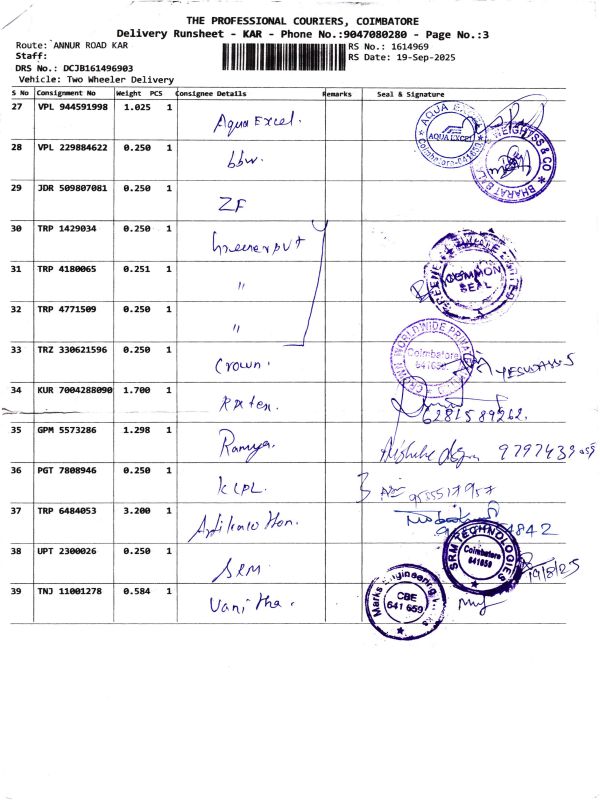 THE PROFESSIONAL COURIERS, COIMBATORE
Delivery Runsheet - KAR - Phone No.:9047080280 - Page No.:3
Route: ANNUR ROAD KAR
RS No.: 1614969
Staff:
RS Date: 19-Sep-2025
DRS No.: DCJB161496903
Vehicle: Two Wheeler Delivery
S No Consignment No Weight PCS Consignee Details Remarks Seal & Signature
27 VPL 944591998 1.025 1 Aqua Excel.
AQUA EXCEL
Coimbatore-641659
28 VPL 229884622 0.250 1 bbw.
BHARAT BALA WEIGHTSS & CO
29 JDR 509807081 0.250 1 ZF
30 TRP 1429034 0.250 1 Greener pvt
31 TRP 4180065 0.251 1 "
COMMON SEAL
32 TRP 4771509 0.250 1 "
33 TRZ 330621596 0.250 1 Crown.
CROWN WORLDWIDE PRIVATE
Coimbatore 641659
34 KUR 7004288090 1.700 1
6281589262.
35 GPM 5573286 1.298 1 Ramya.
36 PGT 7808946 0.250 1 KCPL.
3
37 TRP 6484053 3.200 1
4842
38 UPT 2300026 0.250 1 SRM
SRM TECHNOLOGIES
Coimbatore 641659
19/8/25
39 TNJ 11001278 0.584 1 Vanitha.
Marks Engineering
CBE 641 659